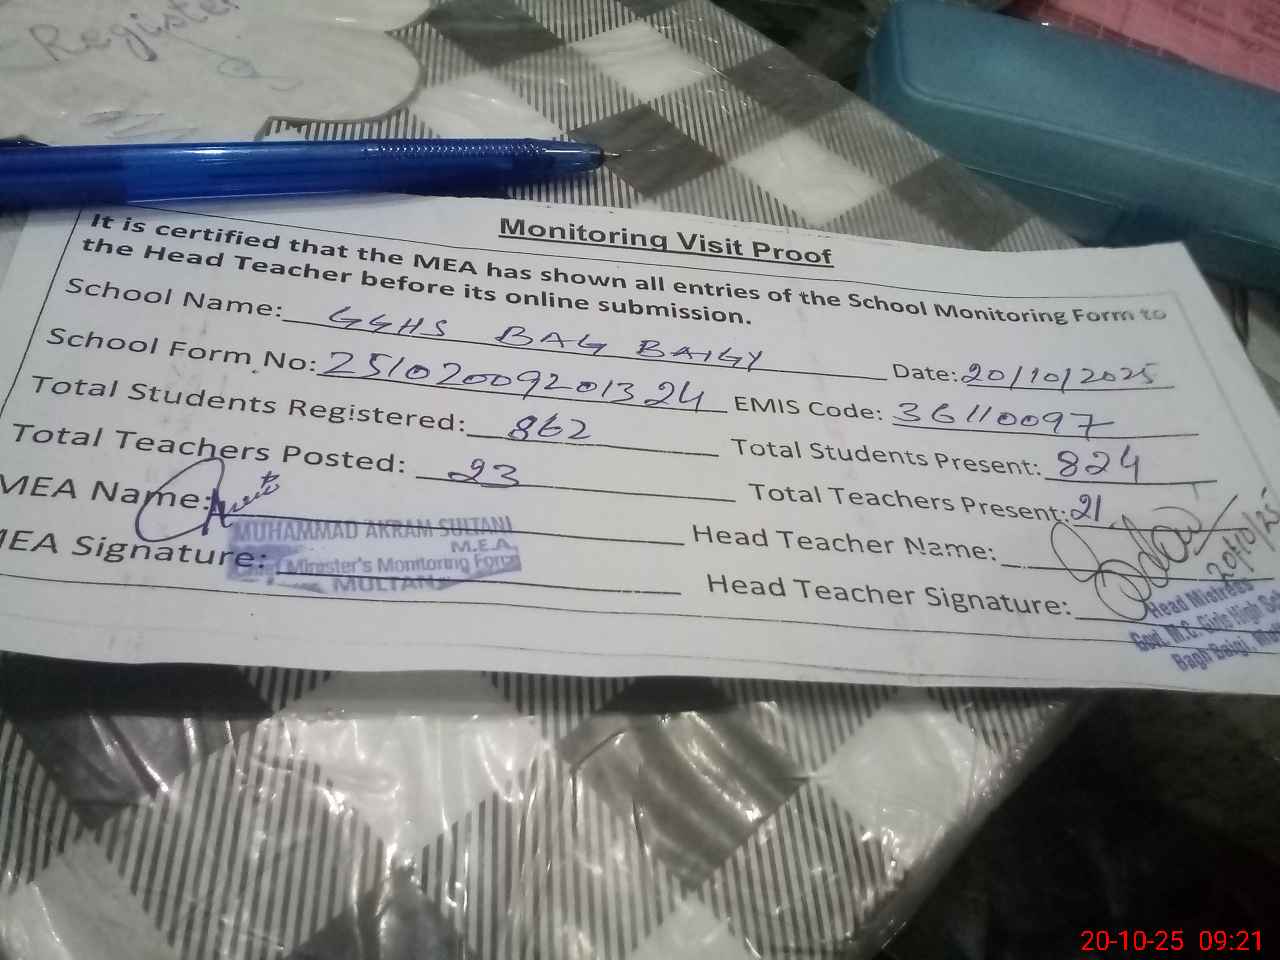 Register
Monitoring Visit Proof
It is certified that the MEA has shown all entries of the School Monitoring Form to
the Head Teacher before its online submission.
School Name: GGHS BAG BAIGY Date: 20/10/2025
School Form No: 25102009201324 EMIS Code: 36110097
Total Students Registered: 862 Total Students Present: 824
Total Teachers Posted: 23 Total Teachers Present: 21
MEA Name: Head Teacher Name:
MEA Signature: Head Teacher Signature:
MUHAMMAD AKRAM SULTANI
M.E.A.
Chief Minister's Monitoring Force
MULTAN
20/10/25
Head Mistress
Govt. M.C. Girls High
Bagh Baigi,
20-10-25 09:21